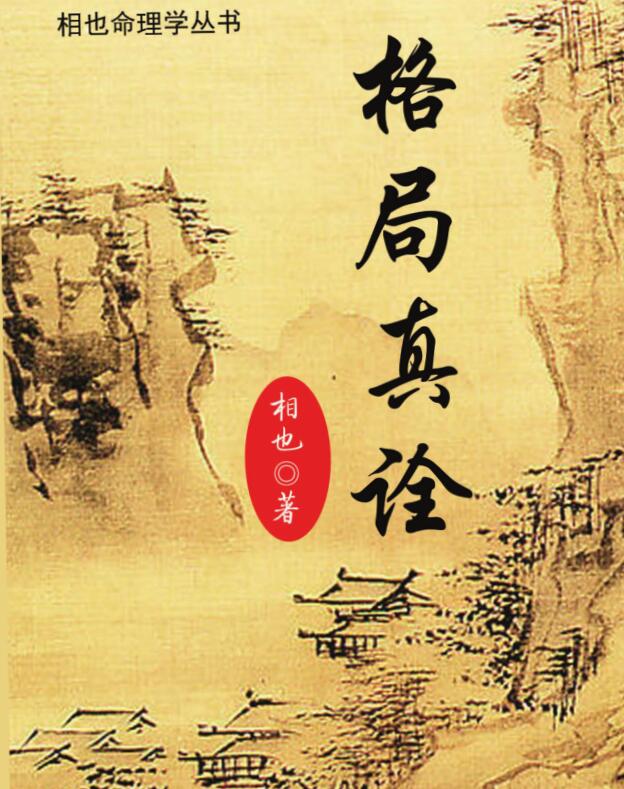 相也命理学丛书
格局真诠
相也◎著